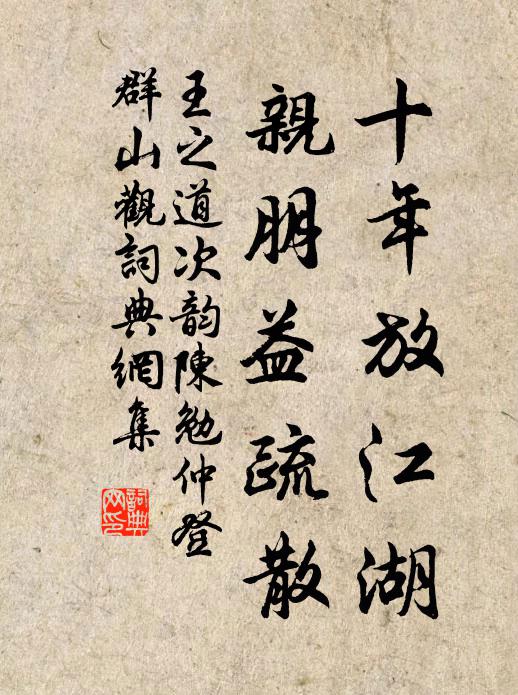 十年放江湖
親朋益疏散
王之道次韵陳勉仲登
群山觀詞典網集
詞典网印